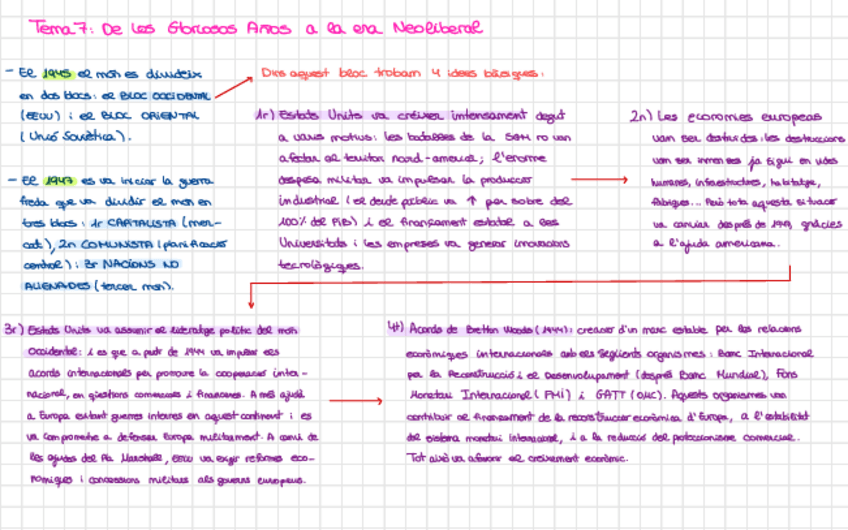 Tema 7: De los Gloriosos Años a la era Neoliberal
- El 1945 el mon es divideix
en dos blocs: el BLOC OCCIDENTAL
(EEUU) i el BLOC ORIENTAL
(Unió Soviètica).
- El 1947 es va iniciar la guerra
freda que va dividir el mon en
tres blocs: 1r CAPITALISTA (mer-
cat), 2n COMUNISTA (planificació
central) i 3r NACIONS NO
ALIENADES (tercer mon).
Dins aquest bloc trobam 4 idees bàsiques:
1r) Estats Units va créixer intensament degut
a varis motius: les batalles de la SGM no van
afectar el territori nord-americà; l'enorme
despesa militar va impulsar la producció
industrial (el deute públic va ↑ per sobre del
100% del PIB) i el finançament estatal a les
Universitats i les empreses va generar innovacions
tecnològiques.
2n) Les economies europeas
van ser destruïdes: les destruccions
van ser immenses ja sigui en vides
humanes, infraestructures, habitatge,
fàbriques... Però tota aquesta situació
va canviar després de 1949, gràcies
a l'ajuda americana.
3r) Estats Units va assumir el lideratge polític del mon
Occidental: i es que a partir de 1944 va impulsar els
acords internacionals per promoure la cooperació inter-
nacional, en qüestions comercials i financeres. A més ajudà
a Europa evitant guerres internes en aquest continent i es
va comprometre a defensar Europa militarment. A canvi de
les ajudes del Pla Marshall, EEUU va exigir reformes eco-
nòmiques i concessions militars als governs europeus.
4t) Acords de Bretton Woods (1944): creació d'un marc estable per les relacions
econòmiques internacionals amb els següents organismes: Banc Internacional
per la Reconstrucció i el Desenvolupament (després Banc Mundial), Fons
Monetari Internacional (FMI) i GATT (OMC). Aquests organismes van
contribuir al finançament de la reconstrucció econòmica d'Europa, a l'estabilitat
del sistema monetari internacional, i a la reducció del proteccionisme comercial.
Tot això va afavorir el creixement econòmic.